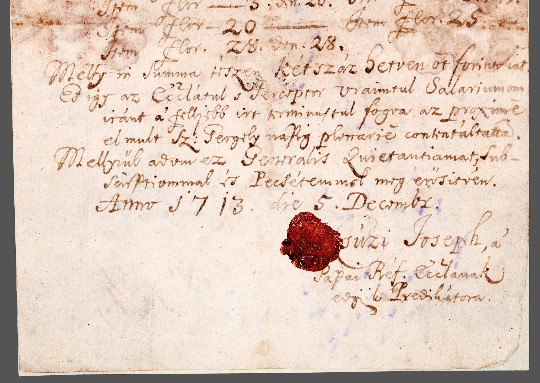 Item Flor 3. den. 20.
Item Flor 20 Item Flor. 25
Item Flor. 28. den. 28.
Melly in Summa tész Kétszáz hetven öt forintokat
Ecclátul s Perceptor Uraimtul Salariumom
iránt a fellyebb irt terminustul fogva az proxime
el mult Szt Gergely napig plenarie contentáltatta.
Mellyrül adom ez Generalis Quietantiamat, sub-
scriptiommal és Pecsétemmel meg erősitvén.
Anno 1713. die 5. Decembr.
Súzi Joseph, a
Pápai Ref. Ecclanak
egyik Prédikátora.